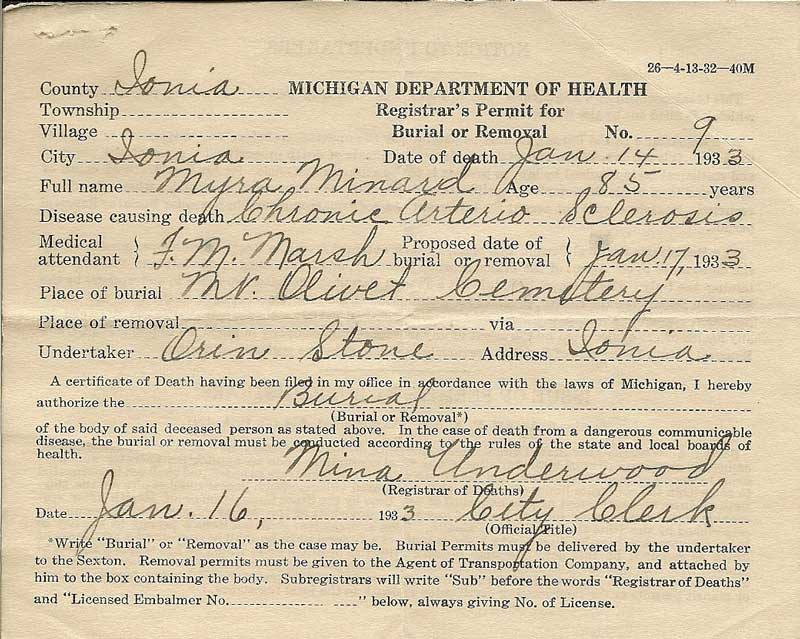 26—4-13-32—40M
County Ionia MICHIGAN DEPARTMENT OF HEALTH
Township Registrar's Permit for
Village Burial or Removal No. 9
City Ionia Date of death Jan. 14 1933
Full name Myra Minard Age 85 years
Disease causing death Chronic Arterio Sclerosis
Medical attendant } F. M. Marsh Proposed date of burial or removal { Jan. 17, 1933
Place of burial Mt. Olivet Cemetery
Place of removal via
Undertaker Orin Stone Address Ionia
A certificate of Death having been filed in my office in accordance with the laws of Michigan, I hereby
authorize the Burial
(Burial or Removal*)
of the body of said deceased person as stated above. In the case of death from a dangerous communicable
disease, the burial or removal must be conducted according to the rules of the state and local boards of
health.
Mina Underwood
(Registrar of Deaths)
Date Jan. 16, 1933 City Clerk
(Official Title)
*Write "Burial" or "Removal" as the case may be. Burial Permits must be delivered by the undertaker
to the Sexton. Removal permits must be given to the Agent of Transportation Company, and attached by
him to the box containing the body. Subregistrars will write "Sub" before the words "Registrar of Deaths"
and "Licensed Embalmer No. " below, always giving No. of License.